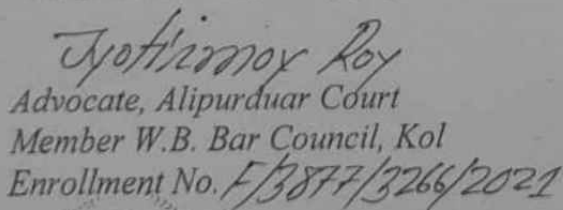 Jyotirmoy Roy
Advocate, Alipurduar Court
Member W.B. Bar Council, Kol
Enrollment No. F/3877/3266/2021